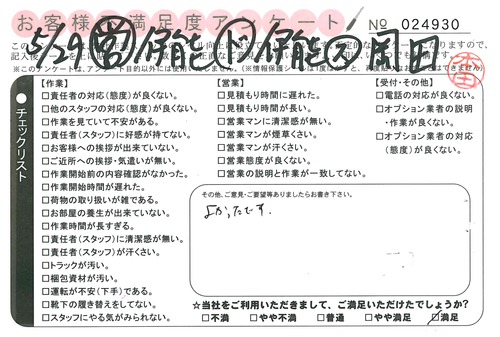 お客様満足度アンケート
No 024930
5/29
チェックリスト
【作業】
□責任者の対応(態度)が良くない。
□他のスタッフの対応(態度)が良くない。
□作業を見ていて不安がある。
□責任者(スタッフ)に好感が持てない。
□お客様への挨拶が出来ていない。
□ご近所への挨拶・気遣いが無い。
□作業開始前の内容確認がなかった。
□作業開始時間が遅れた。
□荷物の取り扱いが雑である。
□お部屋の養生が出来ていない。
□作業時間が長すぎる。
□責任者(スタッフ)に清潔感が無い。
□責任者(スタッフ)が汗くさい。
□トラックが汚い。
□梱包資材が汚い。
□運転が不安(下手)である。
□靴下の履き替えをしてない。
□スタッフにやる気がみられない。
【営業】
□見積もり時間に遅れた。
□見積もり時間が長い。
□営業マンに清潔感が無い。
□営業マンが煙草くさい。
□営業マンが汗くさい。
□営業態度が良くない。
□営業の説明と作業が一致してない。
【受付・その他】
□電話の対応が良くない。
□オプション業者の説明
・作業が良くない。
□オプション業者の対応
(態度)が良くない。
その他、ご意見・ご要望等ありましたらお書き下さい。
よかったです.
☆当社をご利用いただきまして、ご満足いただけたでしょうか?
□不満 □やや不満 □普通 □やや満足 □満足